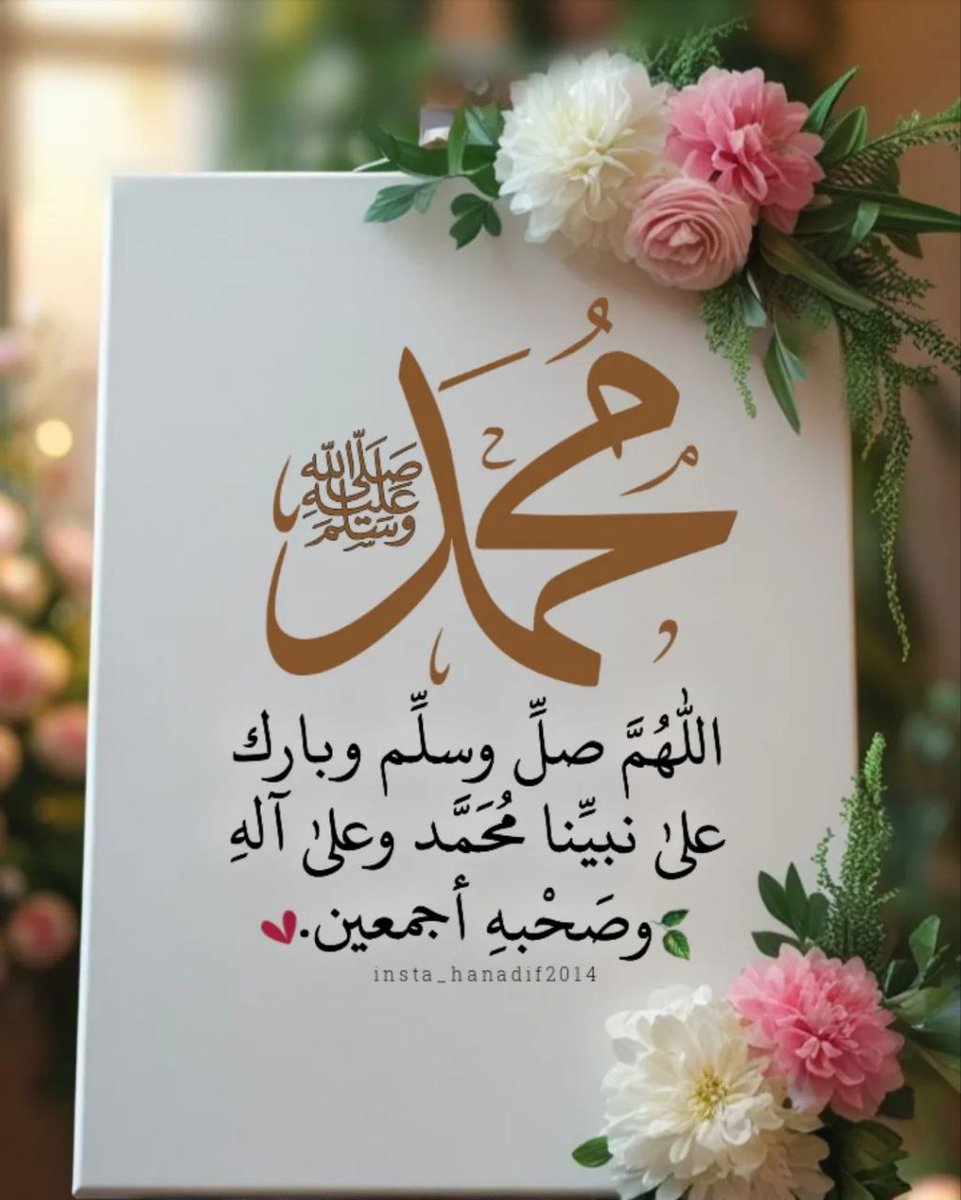 مُحَمَّد
صَلَّى اللّٰه
عَلَيْهِ
وَسَلَّمَ
اللّٰهُمَّ صلِّ وسلِّم وبارك
علىٰ نبيِّنا مُحَمَّد وعلىٰ آلهِ
وصَحْبهِ أجمعين.
insta_hanadif2014